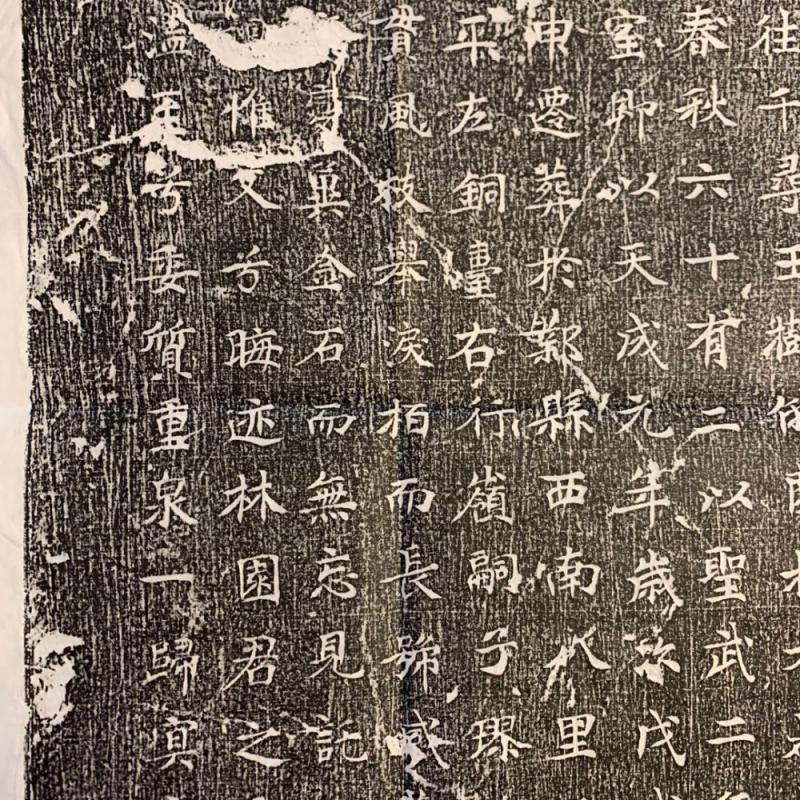 往千尋玉樹
春秋六十有二以聖武二
室即以天成元年歲次戊
申遷葬於鄴縣西南八里
平左銅臺右行嶺嗣子璆
貫風枝舉淚栢而長號感
冀金石而無忘見託
惟文兮晦迹林園君之
溘兮委質重泉一歸冥